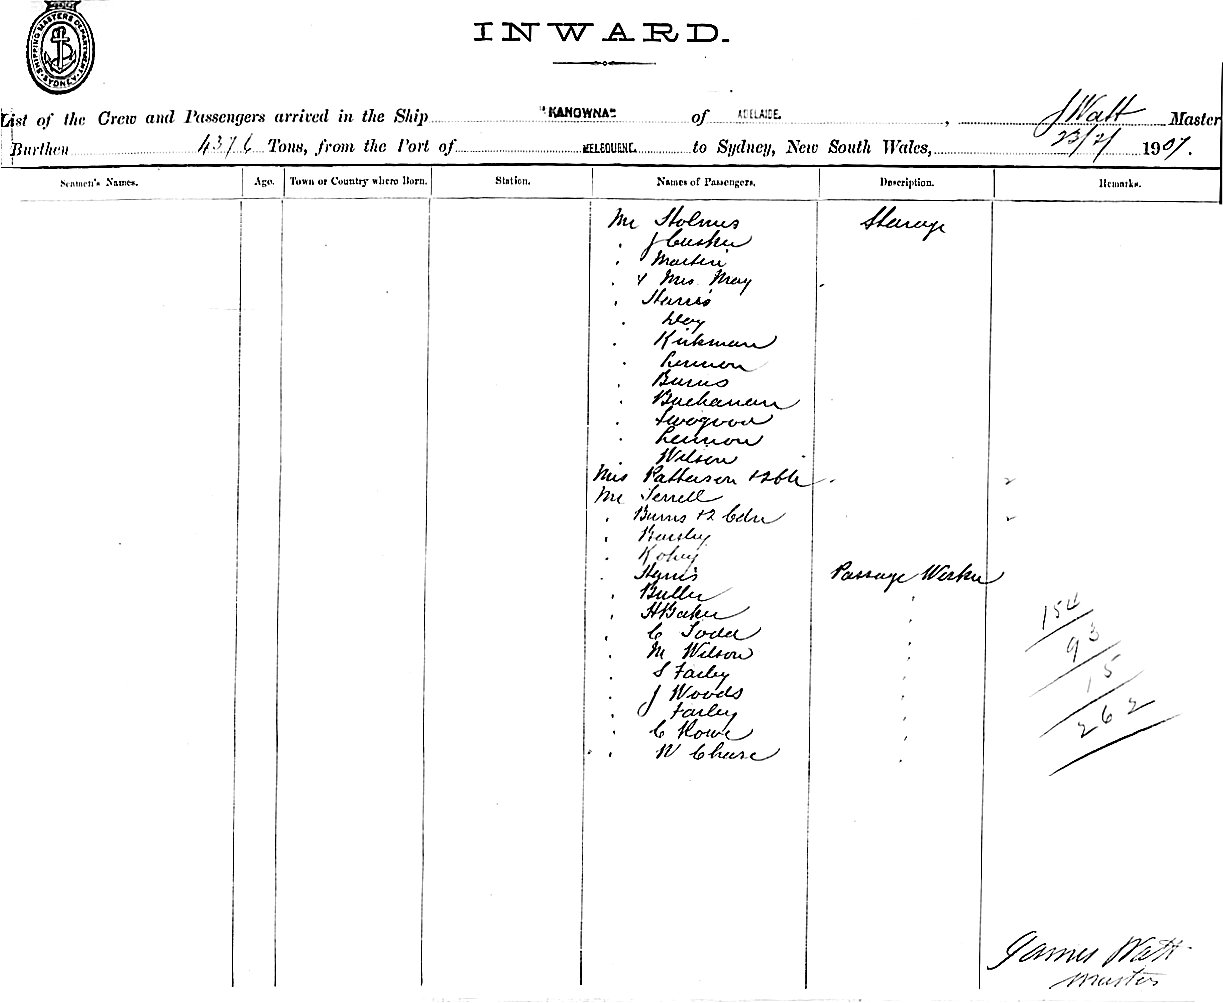 SHIPPING MASTERS DEPARTMENT SYDNEY
INWARD.
List of the Crew and Passengers arrived in the Ship "KANOWNA" of ADELAIDE, J Watt Master
Burthen 4376 Tons, from the Port of MELBOURNE. to Sydney, New South Wales, 23/2/ 1907.
Seamen's Names. Age. Town or Country where Born. Station. Names of Passengers. Description. Remarks.
Mr Holmes Sterage
J Cusker
Martin
& Mrs May
Harris
Day
Kirkman
Lennon
Burns
Buchanan
Lennon
Wilson
Mrs Patterson +2
Mr Terrell
Burns +2 Cdn
Kohey
Harris Passage Worker
Butler
H Baker
C Todd
M Wilson
S Farley
J Woods
Farley
C Howe
W Chase
154
93
15
262
James Watt
Master